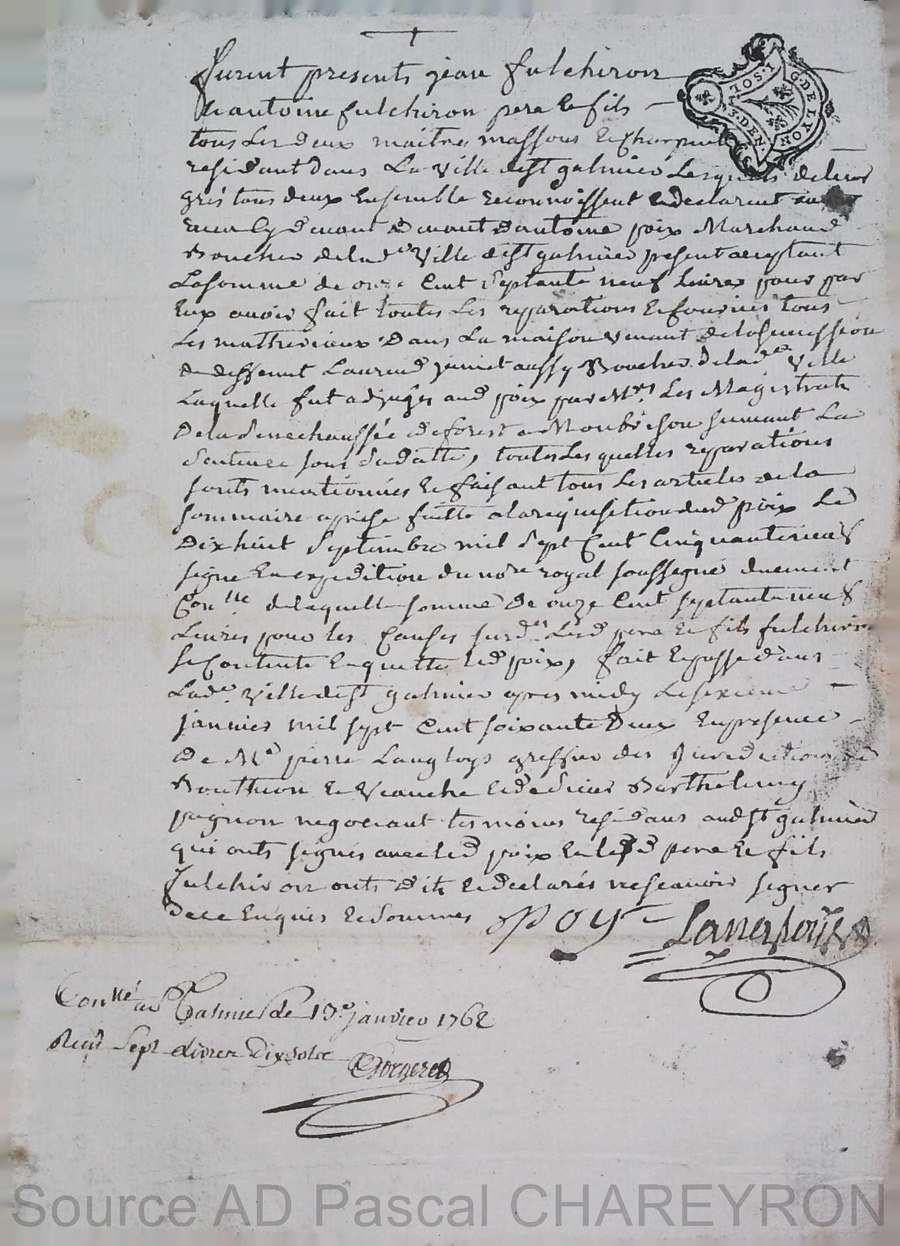 furent presents jean fulchiron
& antoine fulchiron pere & fils
tous les deux maitres massons & charpent
residant dans La Ville de st galmier Lesquels de leur
gré tous deux Ensemble reconnoissent & declarent
antoine poix Marchand
Boucher de lad.e Ville de st galmier present acceptant
La somme de onze Cent Septante neuf Livres pour par
Eux avoir fait toutes Les reparations & fournies tous
Les matherieaux Dans La maison venant de la succession
de deffunt Laurend junict aussy Boucher de lad.e Ville
Laquelle fut adjugée aud poix par Mrs Les Magistrats
De la Senechaussée de forest a Monbrison suivant La
Sentence sous sa datte, toutes Les quelles reparations
sonts mentionnées & faisant tous Les articles de la
sommaire aprise faitte a la requisition dud poix Le
Dix huit Septembre mil Sept Cent Cinquante neuf
signé En expedition du nore royal soussigné duement
Con.lle de laquelle somme De onze Cent septante neuf
Livres pour les Causes susd.es Lesd pere & fils fulchiron
se Contente Enquitte led poix, fait & passé dans
Lad.e Ville de st galmier apres midy Le sixieme
janvier mil sept Cent soixante Deux En presence
De Me pierre Langloys greffier des Juridictions de
Boutheon & Veauche & de Sieur Barthelemy
pagnon negociant temoins residans aud st galmier
qui onts signés avec led poix & lesd pere & fils
fulchiron onts dit & declarés ne scavoir signer
De ce Enquis & Sommés Poy
Con.llé a st Galmier le 13e janvier 1762
Reçu Sept Livres Dix sols
G. DE LYON
SOL.
DEN.
Source AD Pascal CHAREYRON